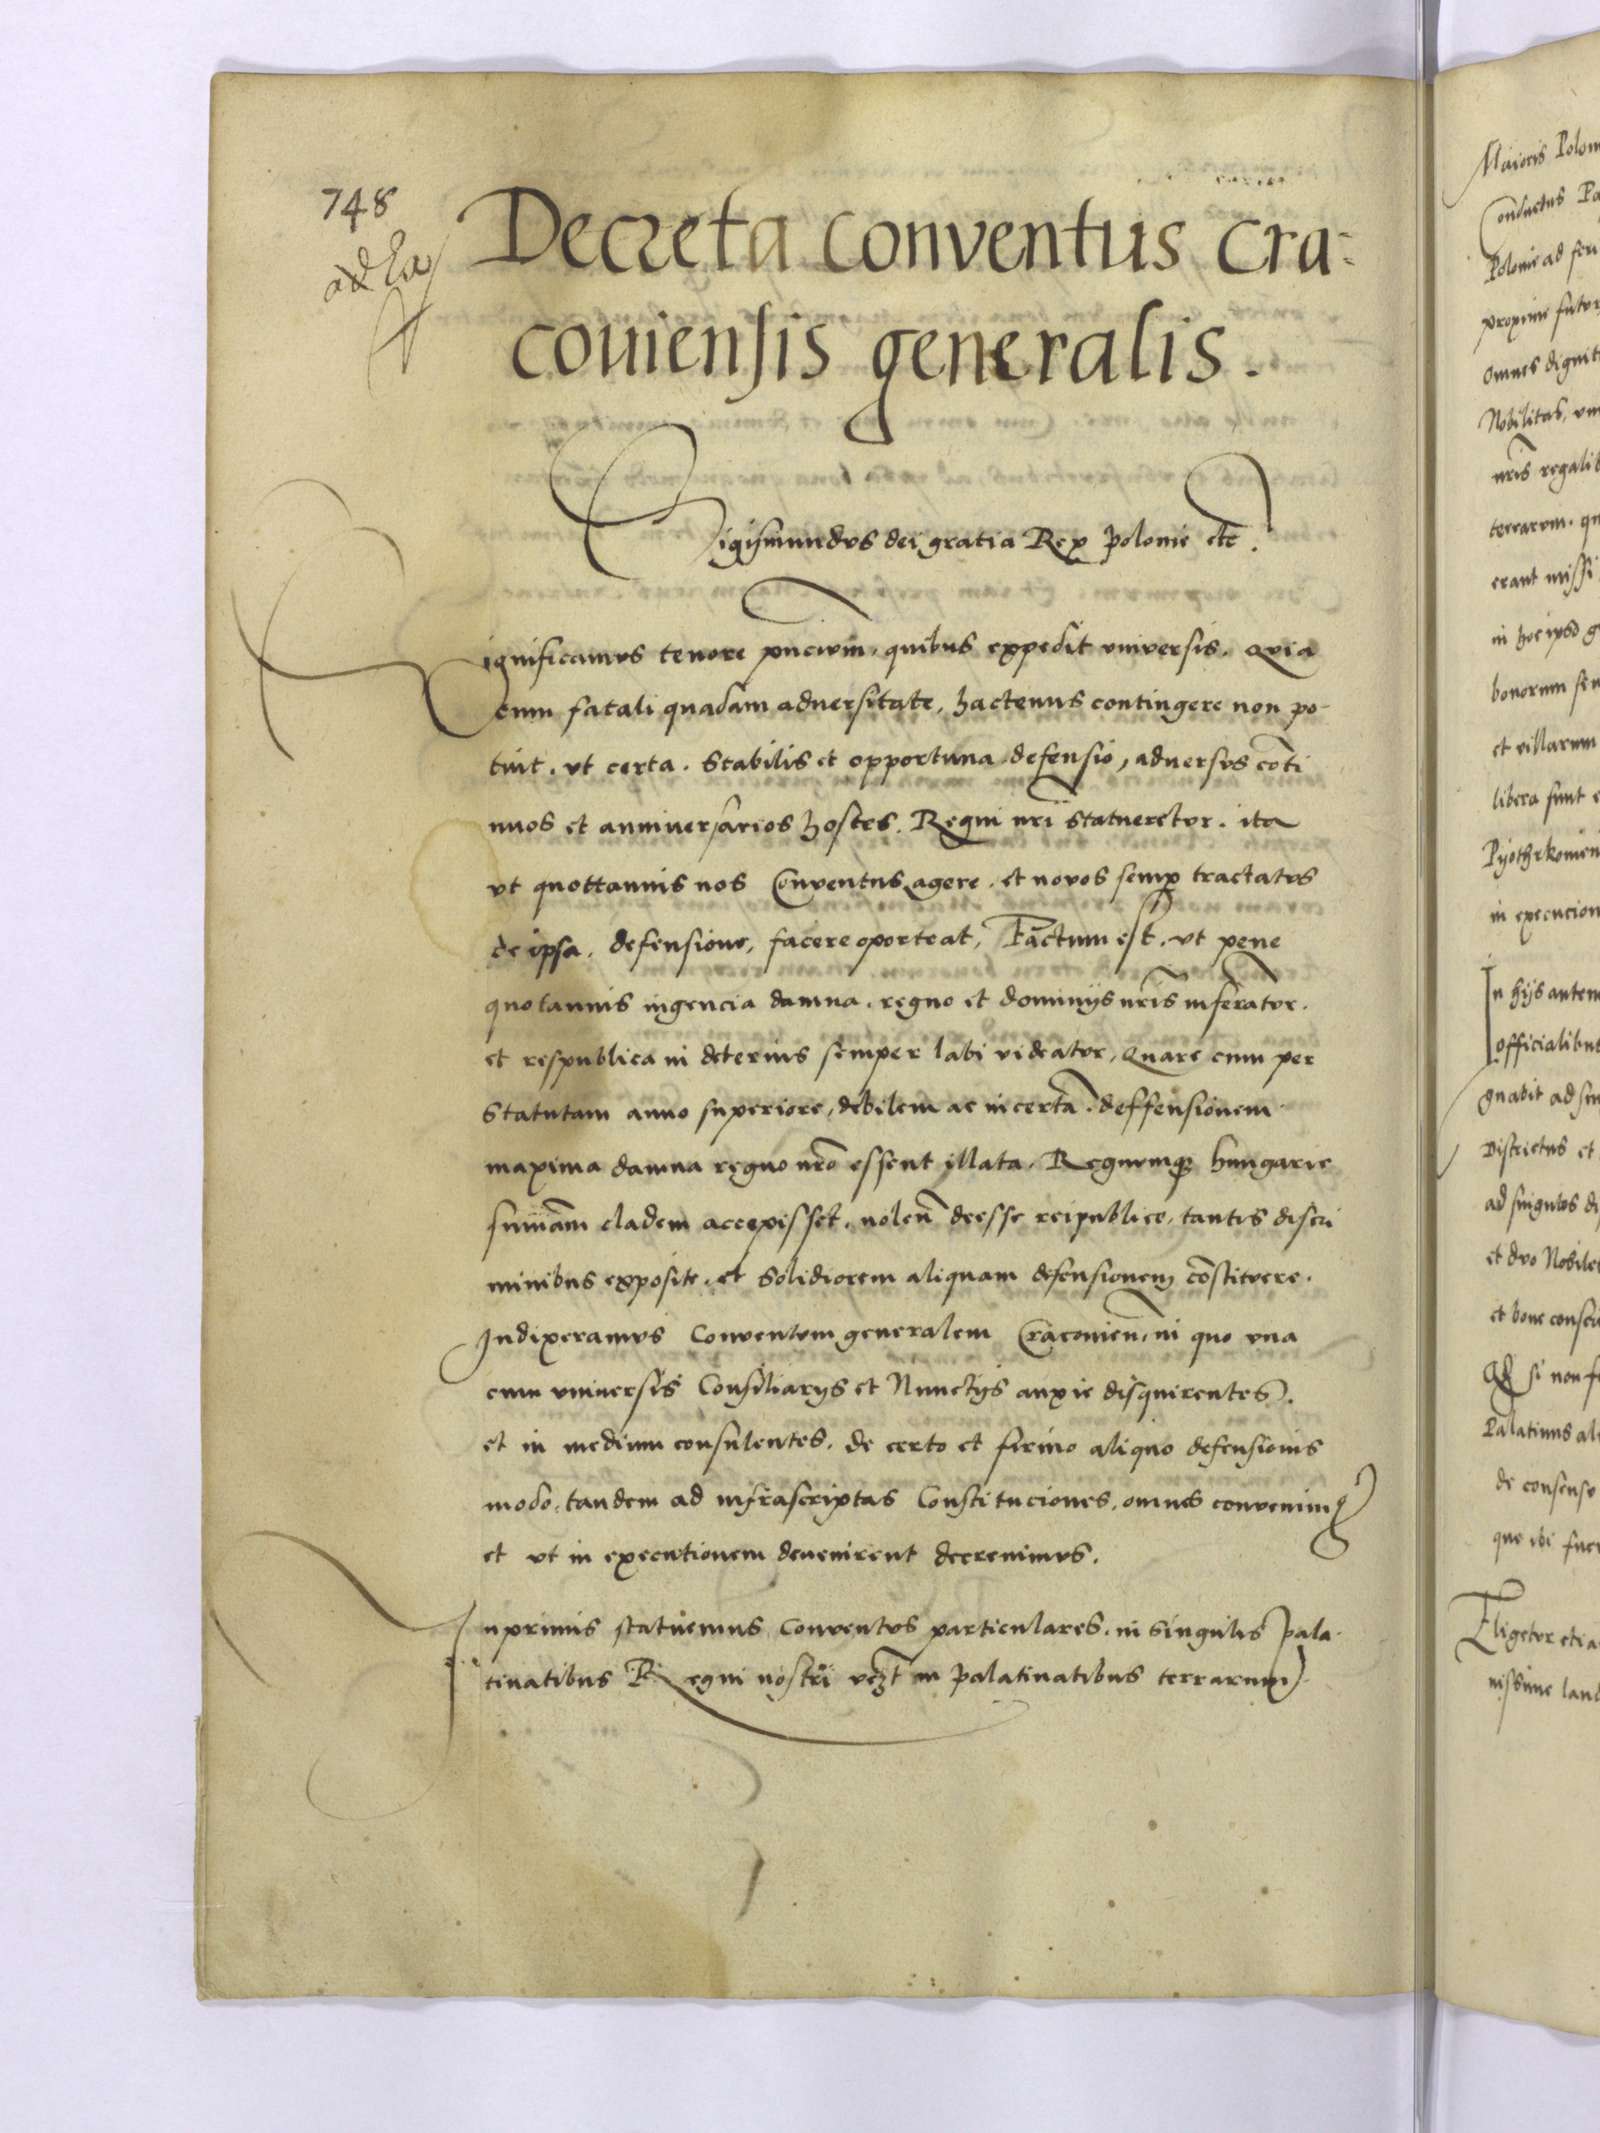 748
Decreta conventus Cra=
couiensis generalis.
Sigismundus dei gratia Rex polonie etc.
Significamus tenore pncium, quibus expedit vniversis. Quia
cum fatali quadam adversitate, hactenus contingere non po-
tuit. vt certa. Stabilis et opportuna defensio, adversus coti
nuos et anniversarios hostes. Regni nri statueretur. ita
vt quottannis nos Conventus agere. et novos semp tractatus
de ipsa. defensione, facere oporteat, Factum est. vt pene
quotannis ingencia damna. regno et dominijs nris inferatur.
et respublica in deterius semper labi videatur, Quare cum per
Statutam anno superiore, debilem ac incerta. deffensionem
maxima damna regno nro essent illata. Regnumqz hungarie
summam cladem accepisset. nolen deesse reipublice, tantis discri
minibus exposite. et Solidiorem aliquam defensionem costituere.
Indixeramus Conventum generalem Cracouien, in quo vna
cum vniversis Consiliarijs et Nunctijs anxie disquirentes.
et in medium consulentes. de certo et firmo aliquo defensionis
modo, tandem ad infrascriptas Constituciones, omnes convenimus
et vt in executionem devenirent decrevimus.
Inprimis statuemus Conventus particulares. in Singulis Pala-
tinatibus Regni nostri vczt in palatinatibus terrarum
Maioris Polon
Conductus Pa
Polonie ad feri
proxime futur
omnes dignit
Nobilitas, vn
nris regalib
terrarum. qu
erant missi
in hoc ipso g
bonorum seu
et villarum
libera sunt e
Pyothrkovien
in execucion
In hijs autem
officialibus
gnabit ad sin
Districtus et
ad singulos di
et duo Nobiles
et bone consci
Qd si non f
Palatinus ali
de consensu
que ibi fuer
Eligetur etia
nissime laud